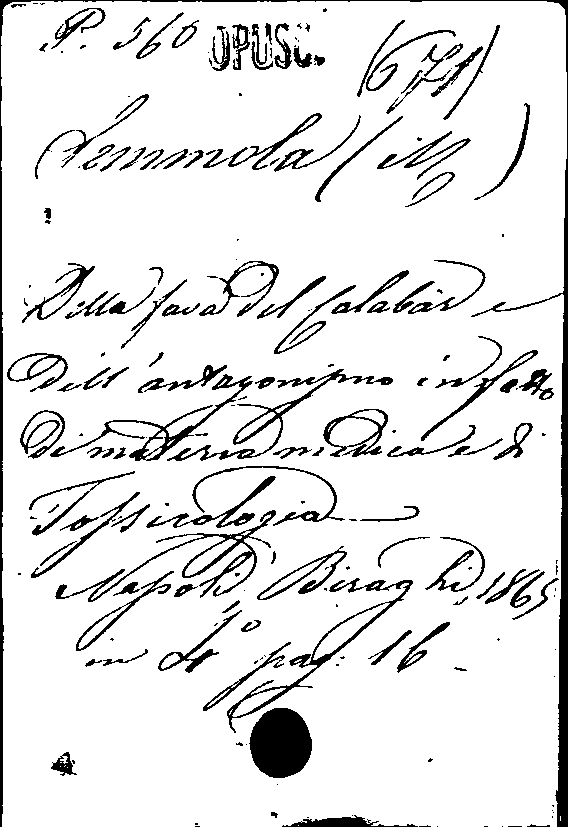 P. 560 OPUSC. (6 74)
Semmola (M)
Della fava del Calabàr e
dell'antagonismo in fatto
di materia medica e di
Tossicologia
Napoli, Biraghi, 1865
in 4º pag: 16